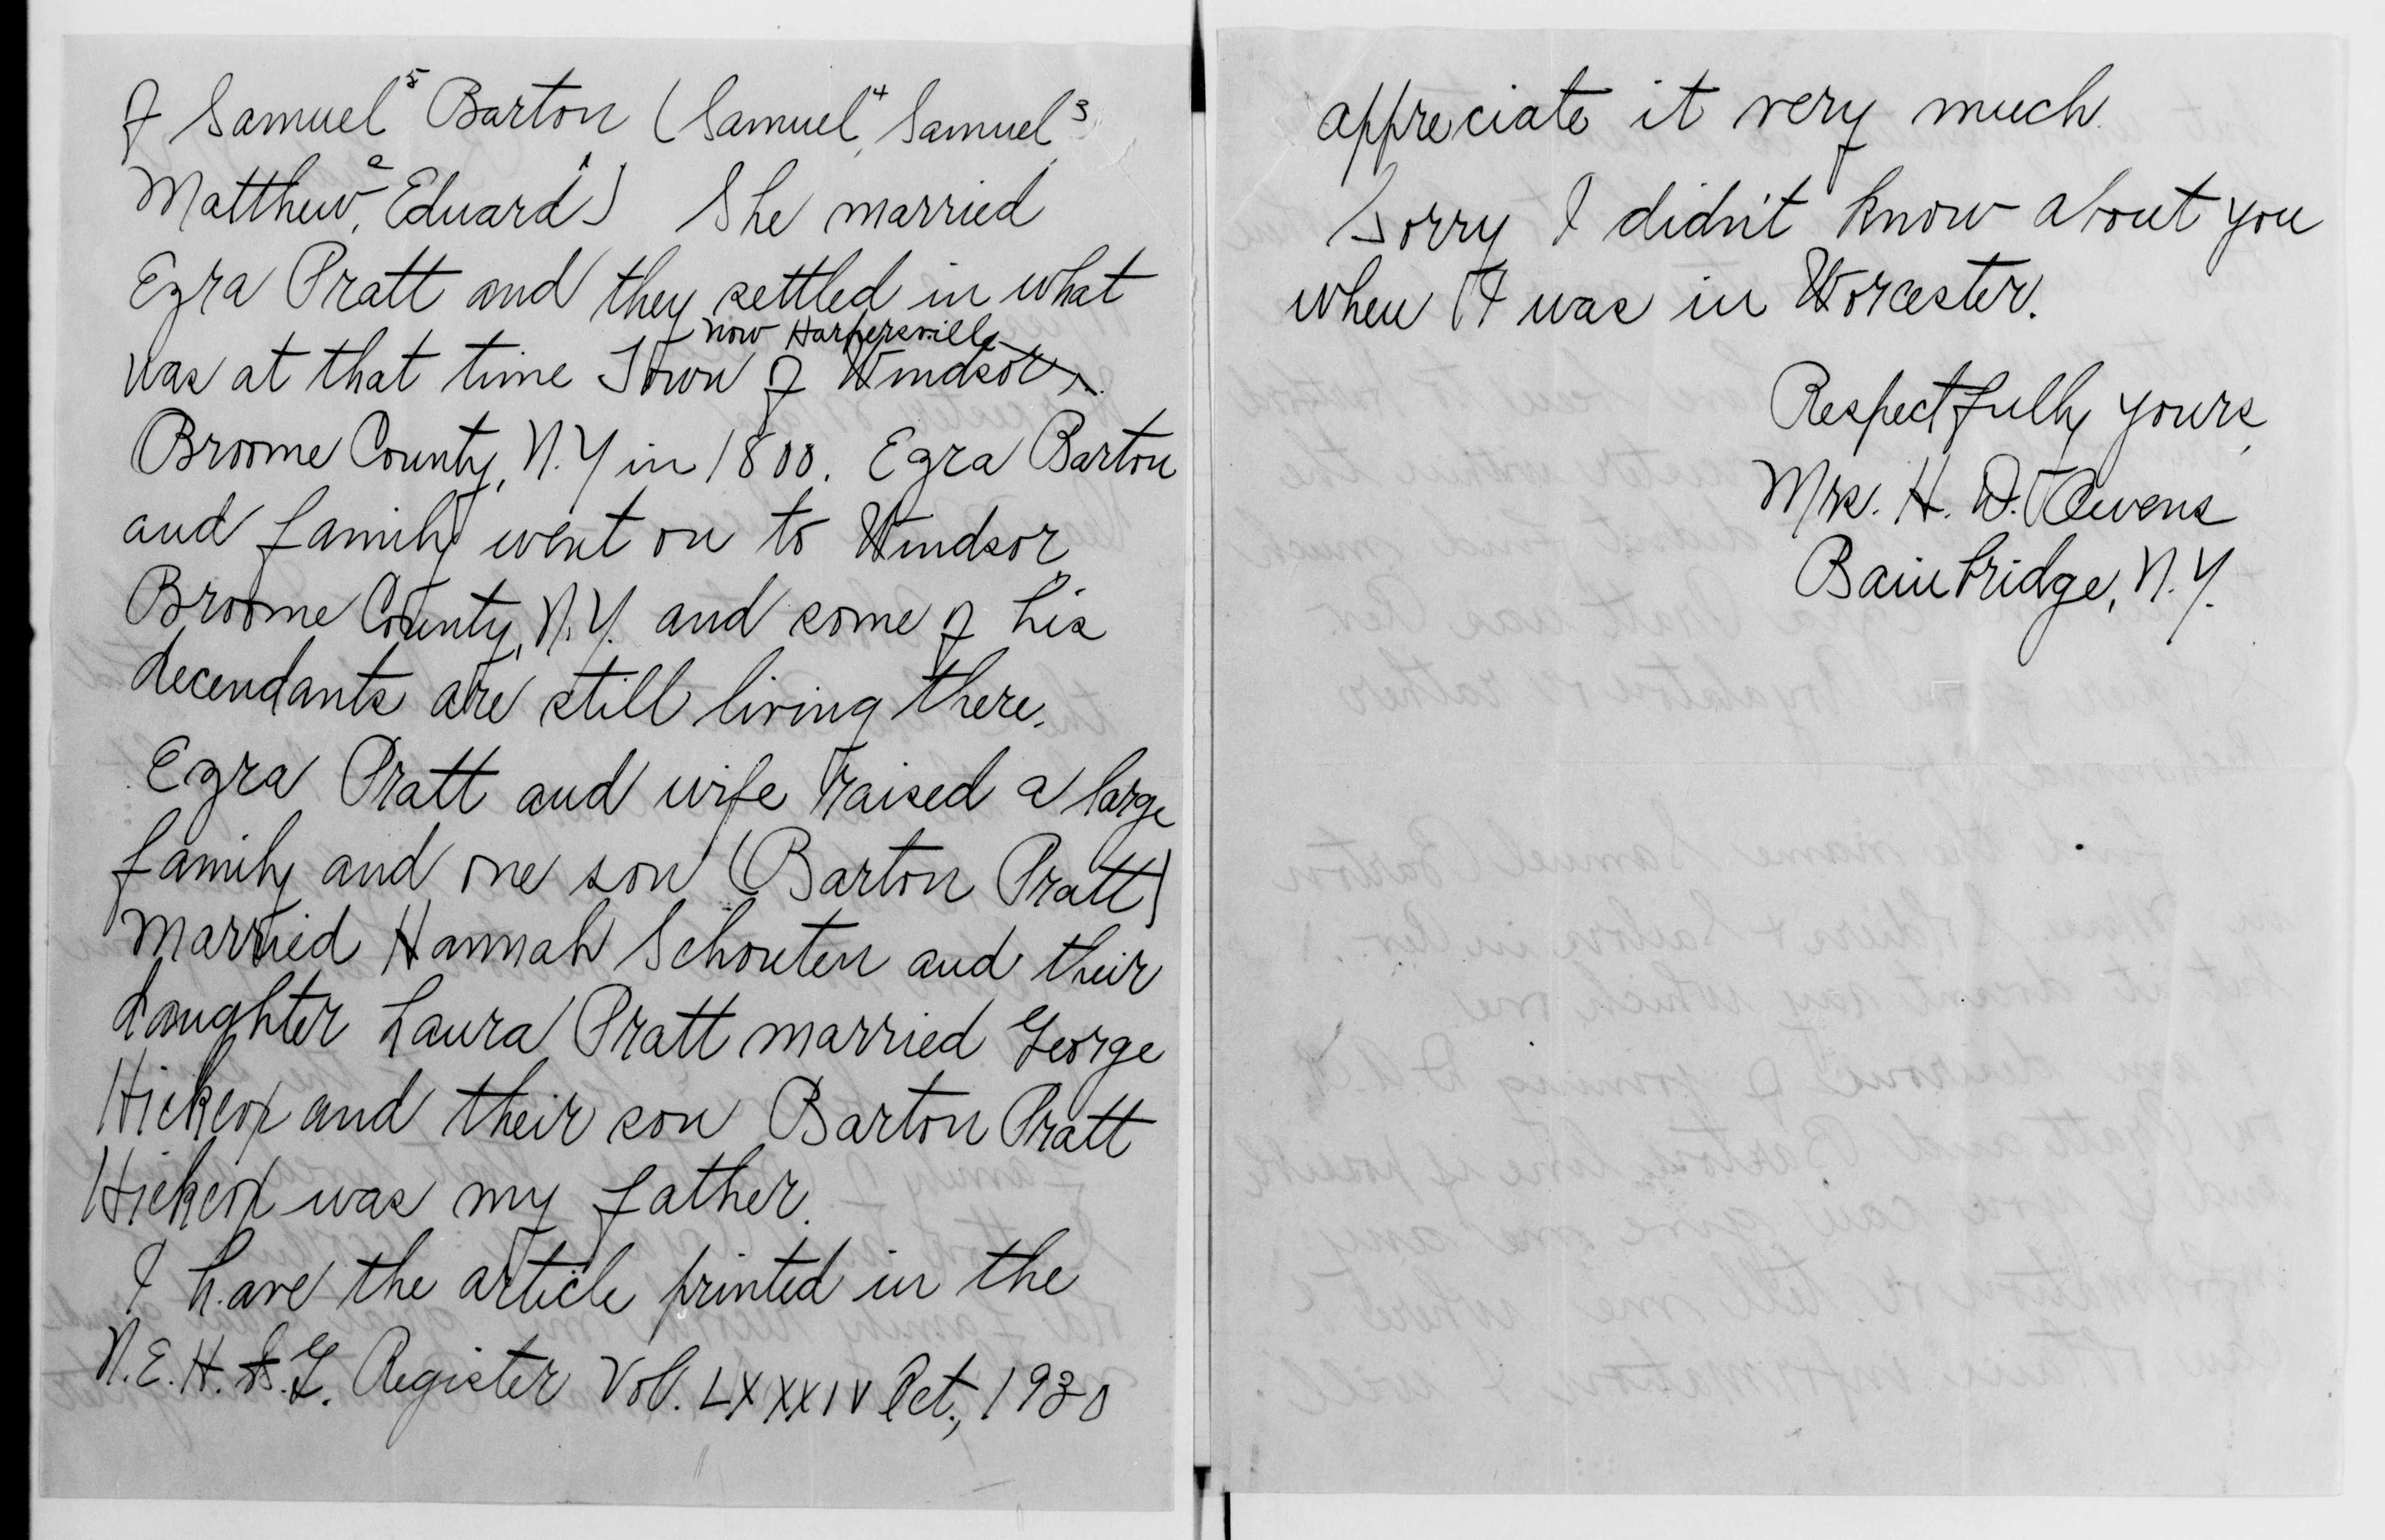 of Samuel⁵ Barton (Samuel⁴, Samuel³
Matthew², Edward¹) She married
Ezra Pratt and they settled in what
now Harpersville
was at that time Town of Windsor
Broome County, N.Y in 1800. Ezra Barton
and family went on to Windsor
Broome County, N.Y. and some of his
decendants are still living there.
Ezra Pratt and wife raised a large
family and one son (Barton Pratt)
married Hannah Schouten and their
daughter Laura Pratt married George
Hickox and their son Barton Pratt
Hickox was my father.
I have the article printed in the
N.E.H. & G. Register Vol. LXXXIV Oct., 1930
appreciate it very much.
Sorry I didn't know about you
when I was in Worcester.
Respectfully yours,
Mrs. H. D. Owens
Bainbridge, N.Y.